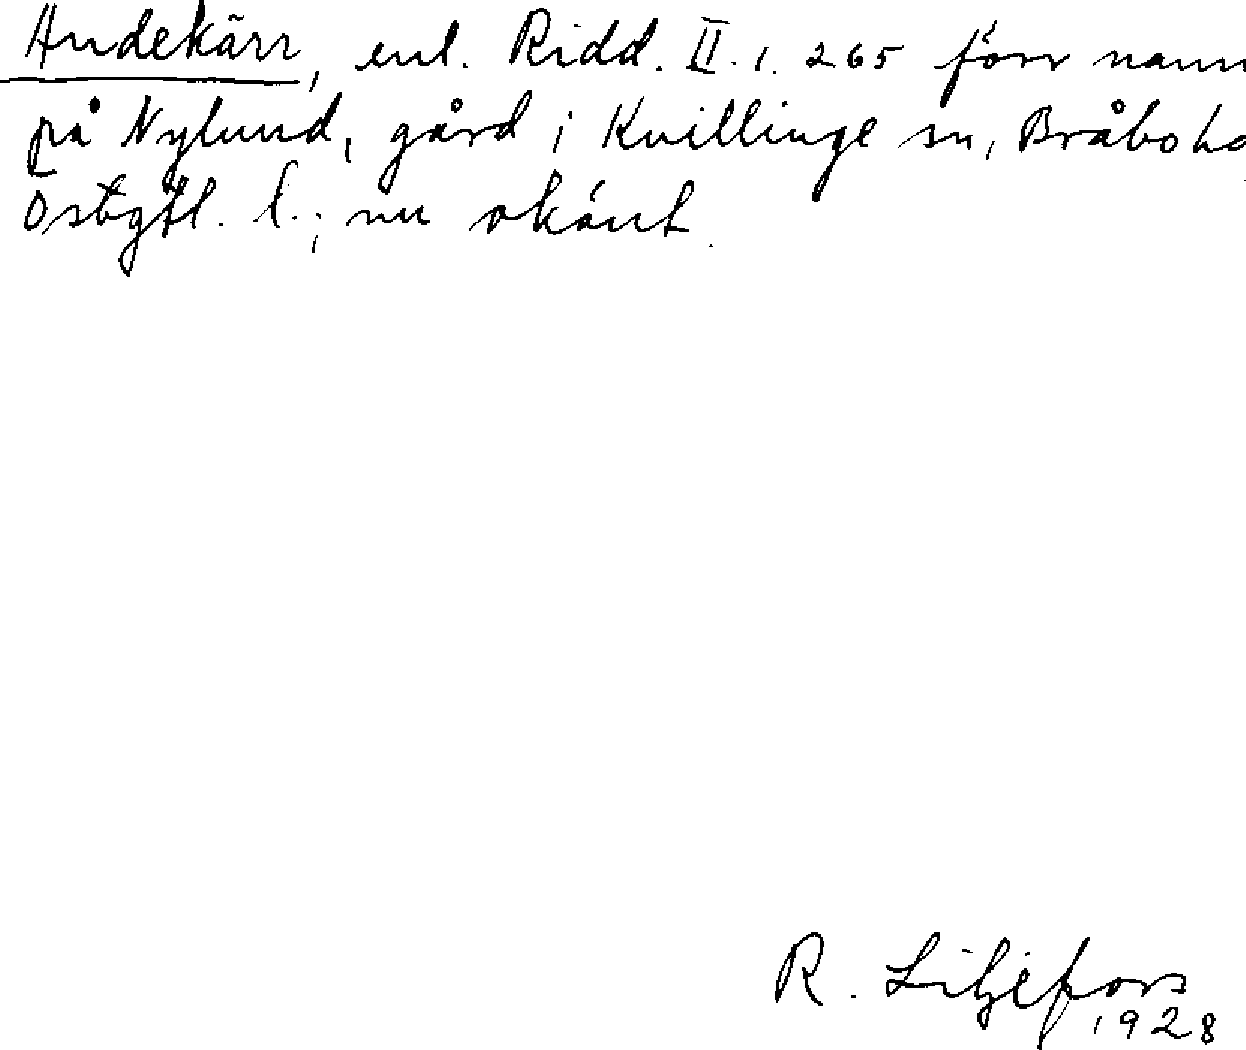 Andekärr, enl. Ridd. II. 1. 265 förr namn
på Nylund, gård i Kvillinge sn, Bråbo hd
Östgtl. l.; nu okänt.
R. Liljefors
1928